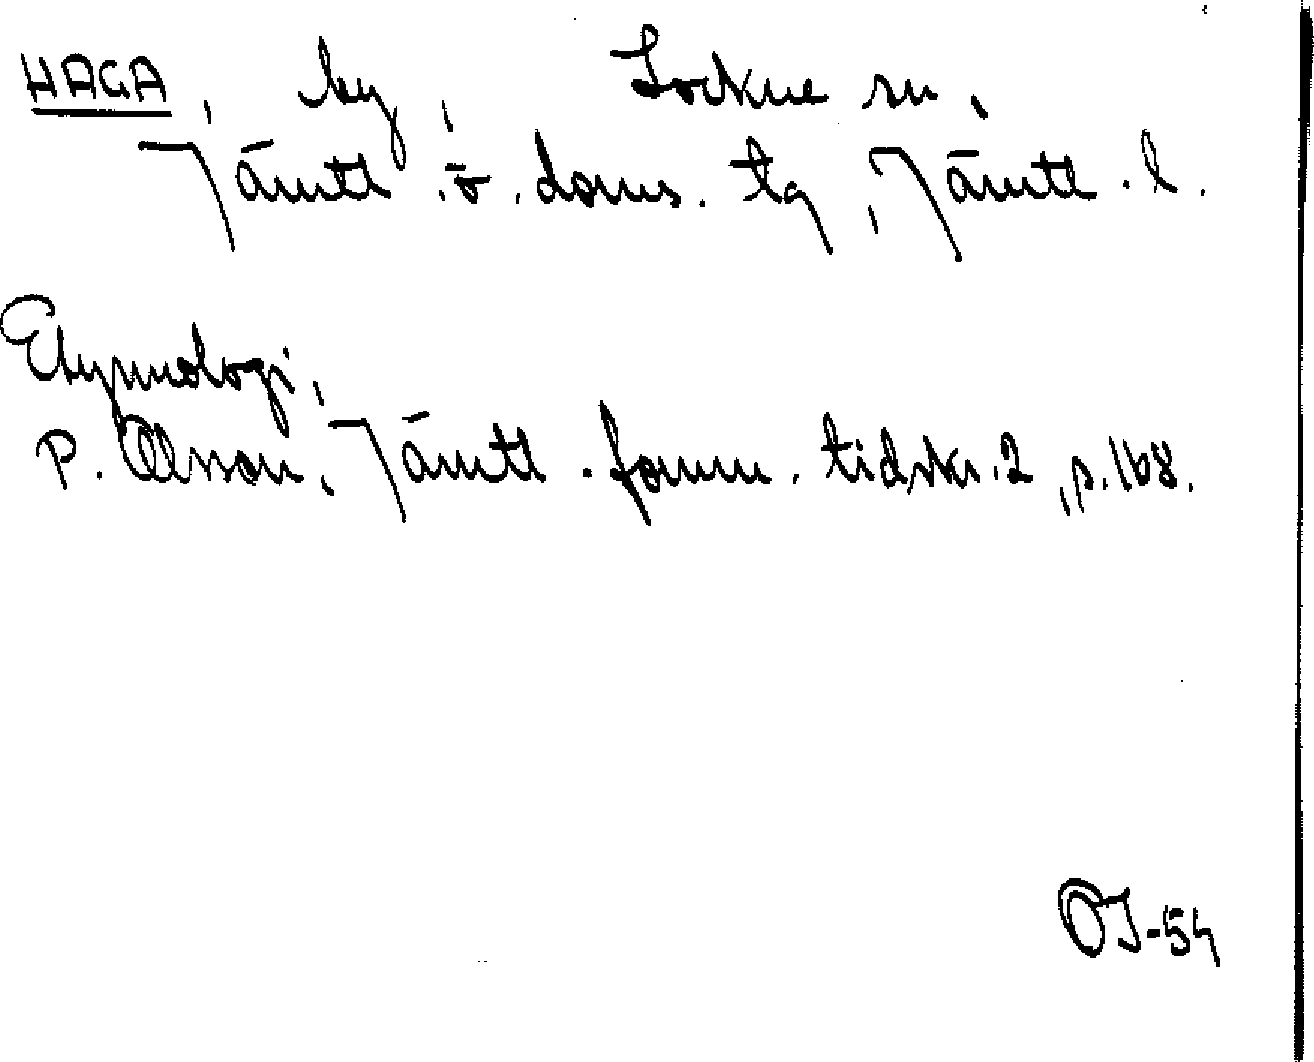 HAGA, by, Lockne sn,
Jämtl. ö. doms. tg, Jämtl. l.
Etymologi,
P. Olsson, Jämtl. fornm. tidskr. 2, s. 168.
OJ-54